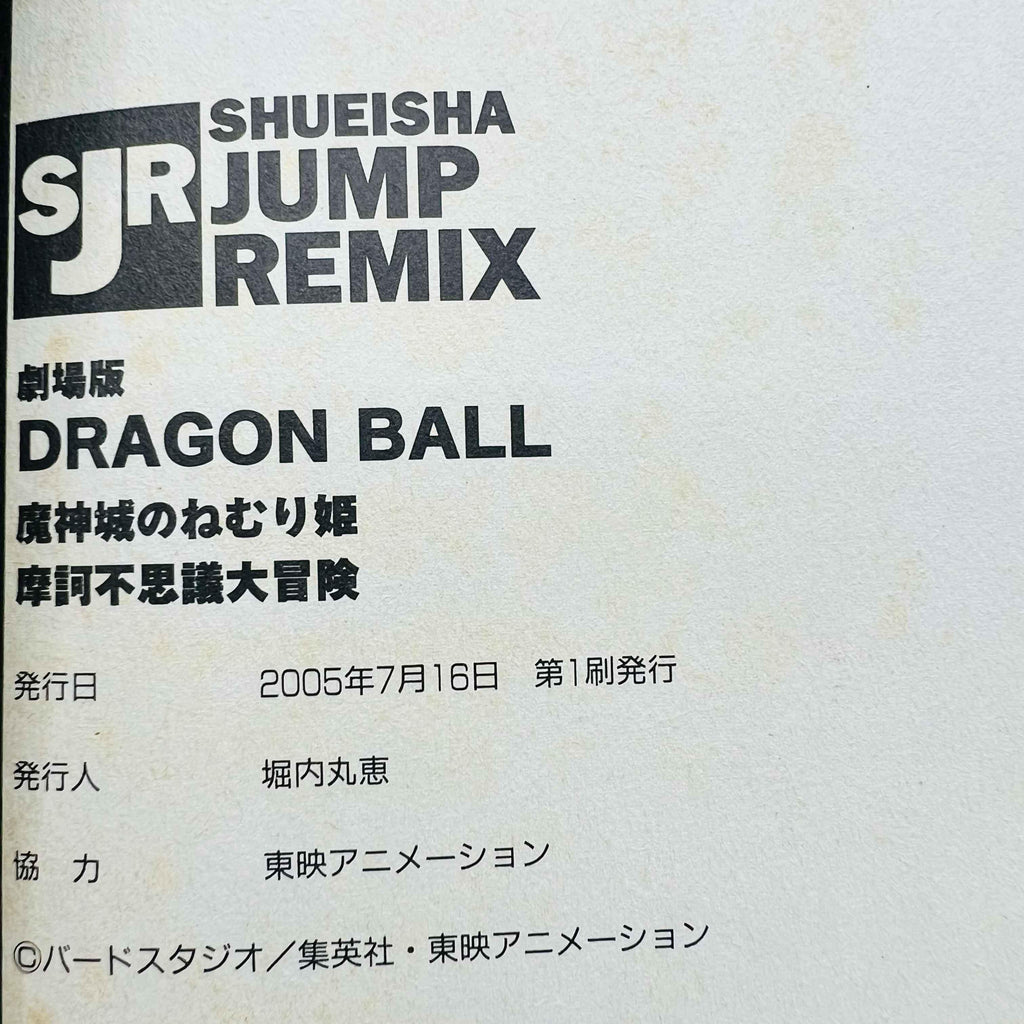 SJR
SHUEISHA
JUMP
REMIX
劇場版
DRAGON BALL
魔神城のねむり姫
摩訶不思議大冒険
発行日　2005年7月16日　第1刷発行
発行人　堀内丸恵
協　力　東映アニメーション
©バードスタジオ／集英社・東映アニメーション